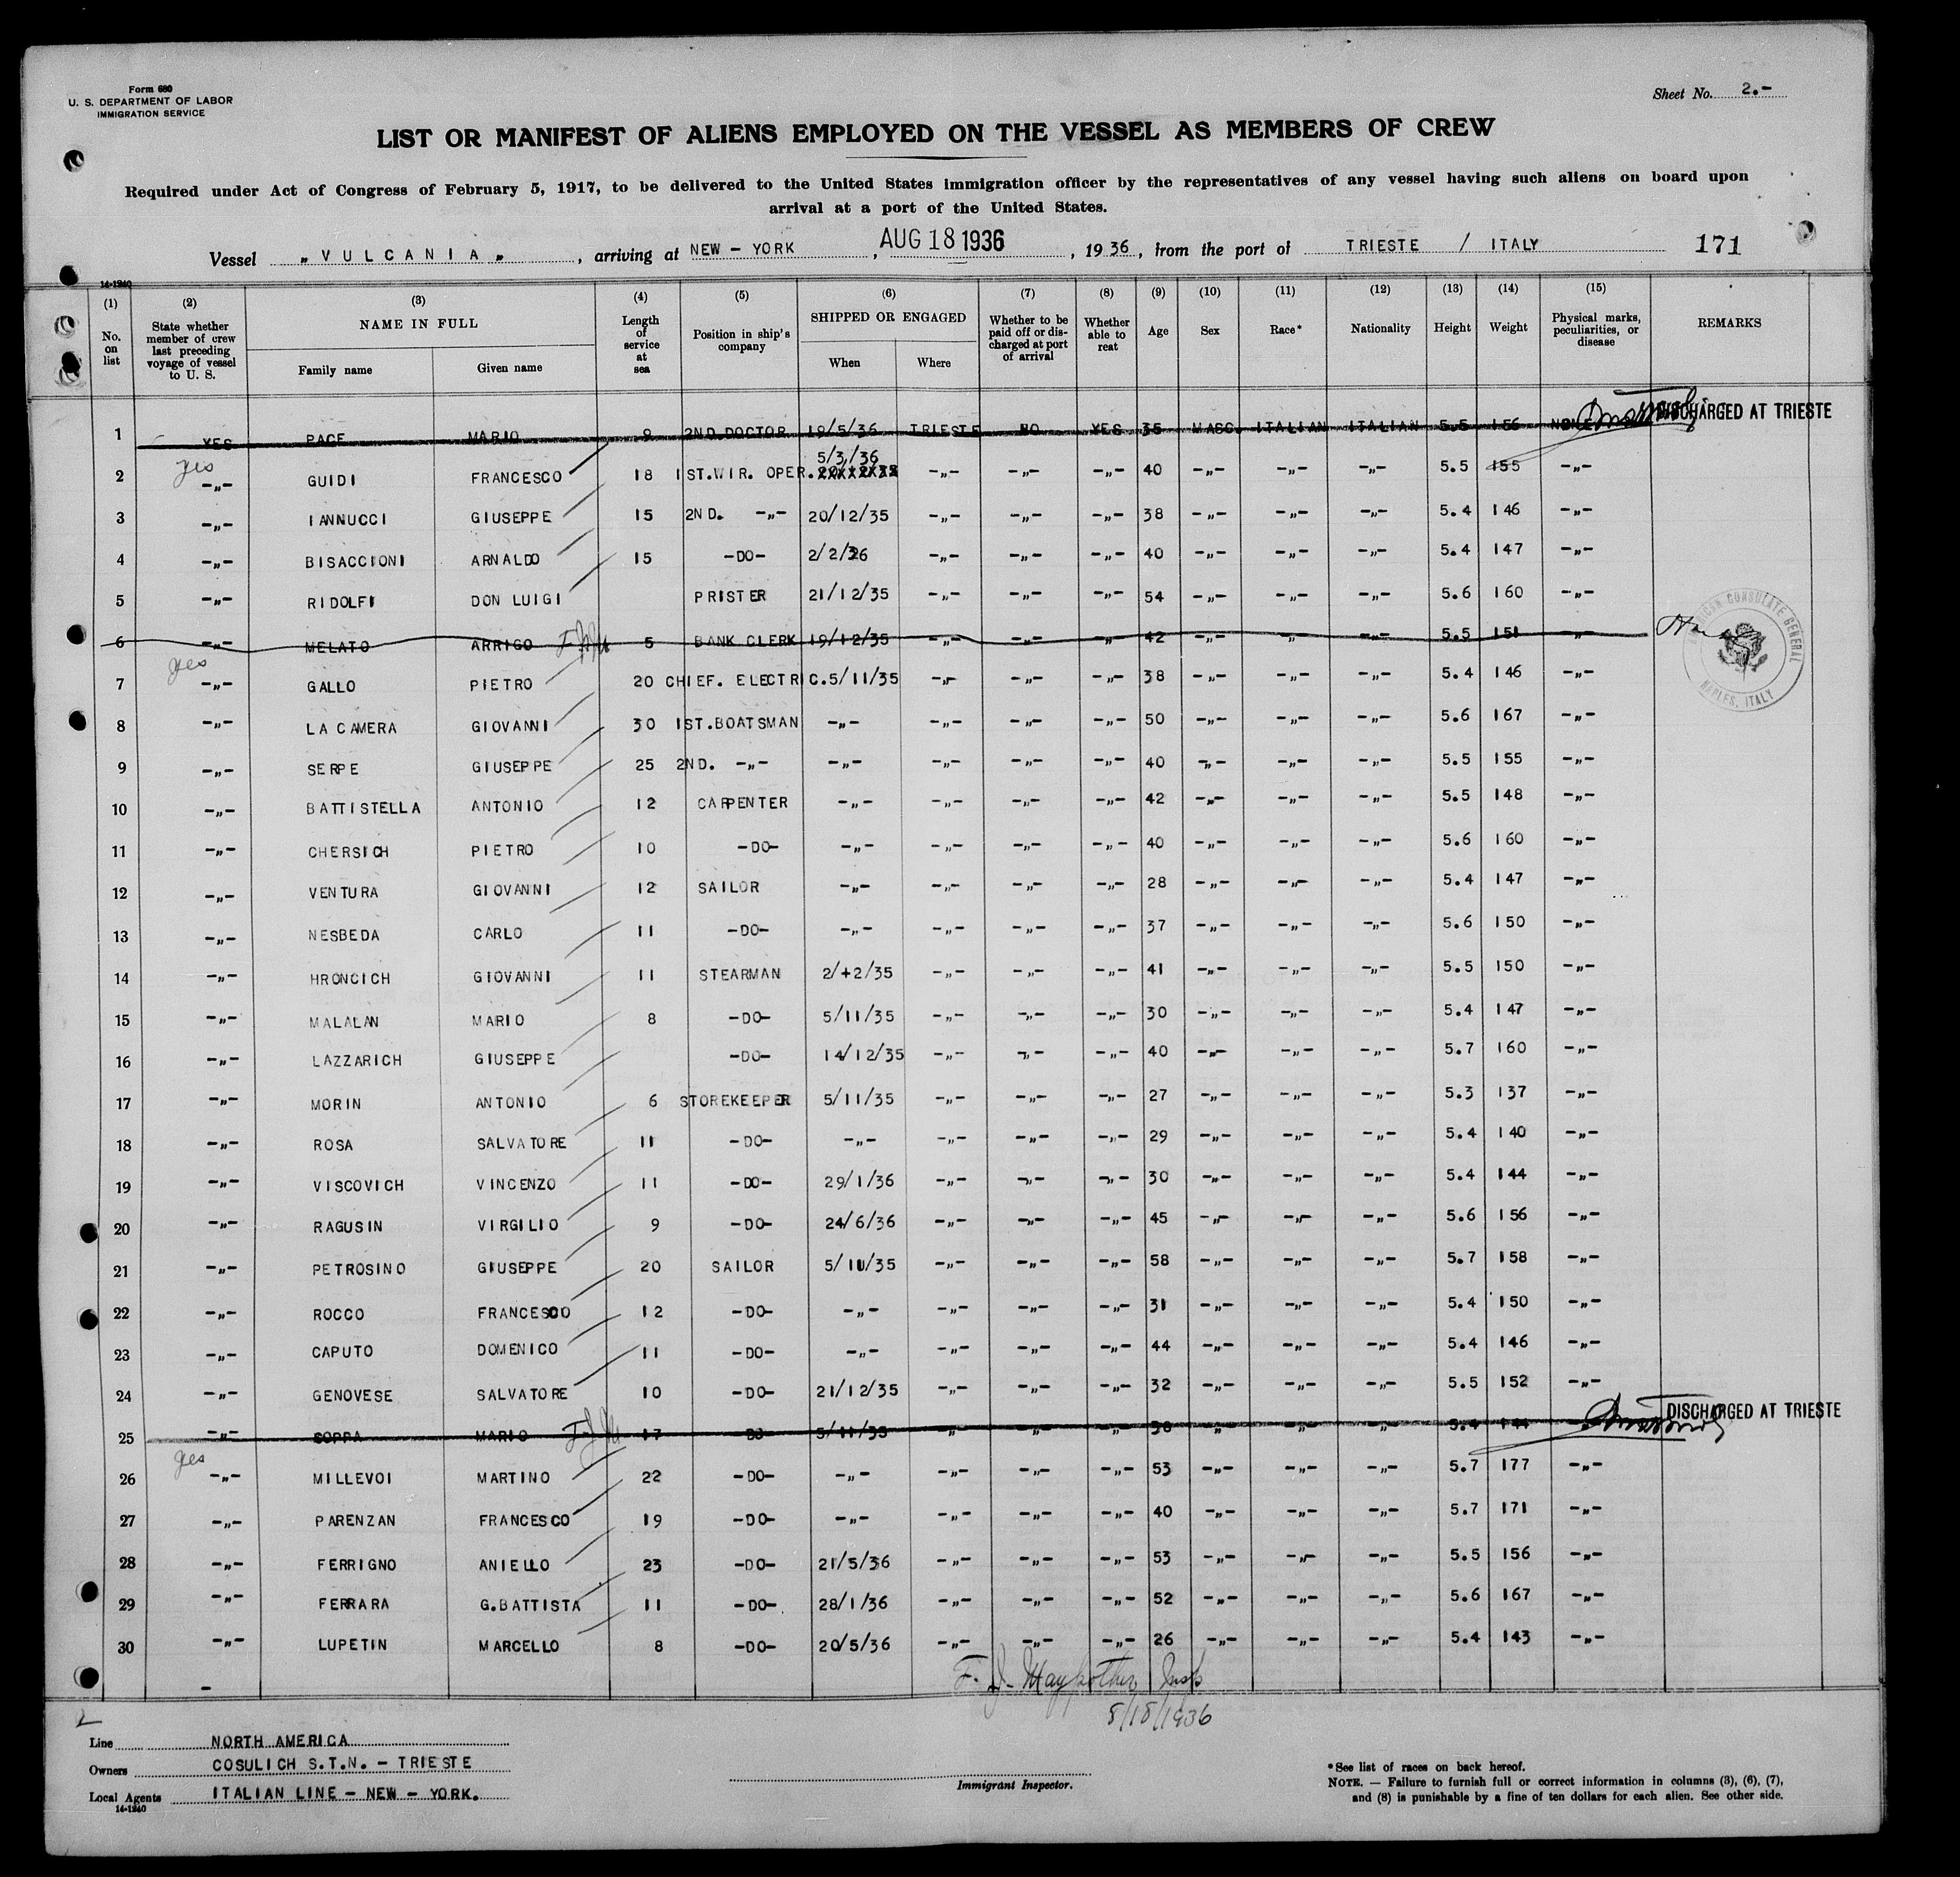 Form 680
U. S. DEPARTMENT OF LABOR
IMMIGRATION SERVICE
Sheet No. 2.-
LIST OR MANIFEST OF ALIENS EMPLOYED ON THE VESSEL AS MEMBERS OF CREW
Required under Act of Congress of February 5, 1917, to be delivered to the United States immigration officer by the representatives of any vessel having such aliens on board upon
arrival at a port of the United States.
Vessel „ VULCANIA „ , arriving at NEW – YORK , AUG 18 1936 , 1936, from the port of TRIESTE / ITALY 171
14-1240
(1) (2) (3) (4) (5) (6) (7) (8) (9) (10) (11) (12) (13) (14) (15)
No. on list
State whether member of crew last preceding voyage of vessel to U. S.
NAME IN FULL
Family name Given name
Length of service at sea
Position in ship's company
SHIPPED OR ENGAGED
When Where
Whether to be paid off or discharged at port of arrival
Whether able to reat
Age Sex Race* Nationality Height Weight
Physical marks, peculiarities, or disease
REMARKS
1 YES PACE MARIO 9 2ND.DOCTOR 19/5/36 TRIESTE NO YES 35 MASC. ITALIAN ITALIAN 5.5 156 NONE DISCHARGED AT TRIESTE
yes
5/3/36
2 –„– GUIDI FRANCESCO 18 1ST.WIR. OPER. –„– –„– –„– 40 –„– –„– –„– 5.5 155 –„–
3 –„– IANNUCCI GIUSEPPE 15 2ND. –„– 20/12/35 –„– –„– –„– 38 –„– –„– –„– 5.4 146 –„–
4 –„– BISACCIONI ARNALDO 15 –DO– 2/2/36 –„– –„– –„– 40 –„– –„– –„– 5.4 147 –„–
5 –„– RIDOLFI DON LUIGI PRISTER 21/12/35 –„– –„– –„– 54 –„– –„– –„– 5.6 160 –„–
6 –„– MELATO ARRIGO 5 BANK CLERK 19/12/35 –„– –„– –„– 42 –„– –„– –„– 5.5 151 –„–
AMERICAN CONSULATE GENERAL
NAPLES, ITALY
yes
7 –„– GALLO PIETRO 20 CHIEF. ELECTRIC. 5/11/35 –„– –„– –„– 38 –„– –„– –„– 5.4 146 –„–
8 –„– LA CAMERA GIOVANNI 30 1ST.BOATSMAN –„– –„– –„– –„– 50 –„– –„– –„– 5.6 167 –„–
9 –„– SERPE GIUSEPPE 25 2ND. –„– –„– –„– –„– –„– 40 –„– –„– –„– 5.5 155 –„–
10 –„– BATTISTELLA ANTONIO 12 CARPENTER –„– –„– –„– –„– 42 –„– –„– –„– 5.5 148 –„–
11 –„– CHERSICH PIETRO 10 –DO– –„– –„– –„– –„– 40 –„– –„– –„– 5.6 160 –„–
12 –„– VENTURA GIOVANNI 12 SAILOR –„– –„– –„– –„– 28 –„– –„– –„– 5.4 147 –„–
13 –„– NESBEDA CARLO 11 –DO– –„– –„– –„– –„– 37 –„– –„– –„– 5.6 150 –„–
14 –„– HRONCICH GIOVANNI 11 STEARMAN 2/+2/35 –„– –„– –„– 41 –„– –„– –„– 5.5 150 –„–
15 –„– MALALAN MARIO 8 –DO– 5/11/35 –„– –„– –„– 30 –„– –„– –„– 5.4 147 –„–
16 –„– LAZZARICH GIUSEPPE –DO– 14/12/35 –„– –„– –„– 40 –„– –„– –„– 5.7 160 –„–
17 –„– MORIN ANTONIO 6 STOREKEEPER 5/11/35 –„– –„– –„– 27 –„– –„– –„– 5.3 137 –„–
18 –„– ROSA SALVATORE 11 –DO– –„– –„– –„– –„– 29 –„– –„– –„– 5.4 140 –„–
19 –„– VISCOVICH VINCENZO 11 –DO– 29/1/36 –„– –„– –„– 30 –„– –„– –„– 5.4 144 –„–
20 –„– RAGUSIN VIRGILIO 9 –DO– 24/6/36 –„– –„– –„– 45 –„– –„– –„– 5.6 156 –„–
21 –„– PETROSINO GIUSEPPE 20 SAILOR 5/11/35 –„– –„– –„– 58 –„– –„– –„– 5.7 158 –„–
22 –„– ROCCO FRANCESCO 12 –DO– –„– –„– –„– –„– 31 –„– –„– –„– 5.4 150 –„–
23 –„– CAPUTO DOMENICO 11 –DO– –„– –„– –„– –„– 44 –„– –„– –„– 5.4 146 –„–
24 –„– GENOVESE SALVATORE 10 –DO– 21/12/35 –„– –„– –„– 32 –„– –„– –„– 5.5 152 –„–
25 –„– SOPPA MARIO 17 –DO– 5/11/35 –„– –„– –„– 38 –„– –„– –„– 5.4 144 DISCHARGED AT TRIESTE
yes
26 –„– MILLEVOI MARTINO 22 –DO– –„– –„– –„– –„– 53 –„– –„– –„– 5.7 177 –„–
27 –„– PARENZAN FRANCESCO 19 –DO– –„– –„– –„– –„– 40 –„– –„– –„– 5.7 171 –„–
28 –„– FERRIGNO ANIELLO 23 –DO– 21/5/36 –„– –„– –„– 53 –„– –„– –„– 5.5 156 –„–
29 –„– FERRARA G.BATTISTA 11 –DO– 28/1/36 –„– –„– –„– 52 –„– –„– –„– 5.6 167 –„–
30 –„– LUPETIN MARCELLO 8 –DO– 20/5/36 –„– –„– –„– 26 –„– –„– –„– 5.4 143 –„–
F. J. Maypother Insp
8/18/1936
Line NORTH AMERICA
Owners COSULICH S.T.N. – TRIESTE
Local Agents ITALIAN LINE – NEW – YORK.
14-1240
Immigrant Inspector.
*See list of races on back hereof.
NOTE. — Failure to furnish full or correct information in columns (3), (6), (7),
and (8) is punishable by a fine of ten dollars for each alien. See other side.